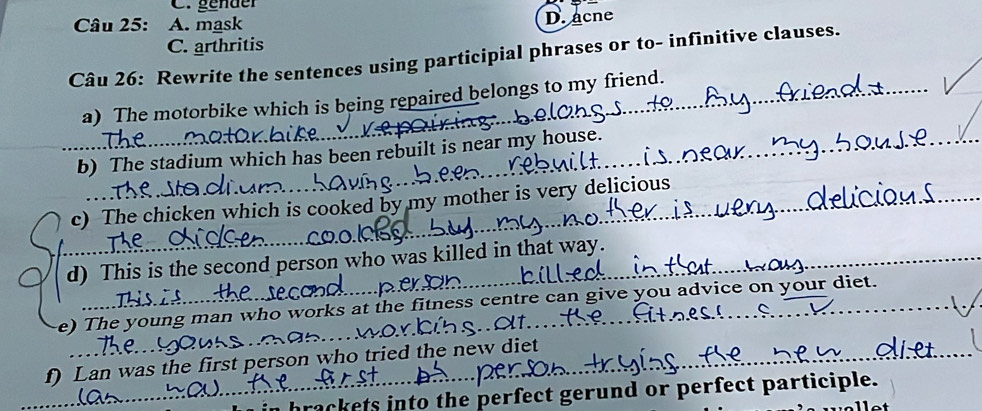 C. gender
Câu 25: A. mask
D. acne
C. arthritis
Câu 26: Rewrite the sentences using participial phrases or to- infinitive clauses.
a) The motorbike which is being repaired belongs to my friend.
The motorbike repairing belongs to my friend
b) The stadium which has been rebuilt is near my house.
The stadium having been rebuilt is near my house
c) The chicken which is cooked by my mother is very delicious
The chidcen cooked by my mother is very delicious
d) This is the second person who was killed in that way.
This is the second person killed in that way
e) The young man who works at the fitness centre can give you advice on your diet.
The young man working at the fitness c
f) Lan was the first person who tried the new diet
Lan was the first person trying the new diet
in brackets into the perfect gerund or perfect participle.